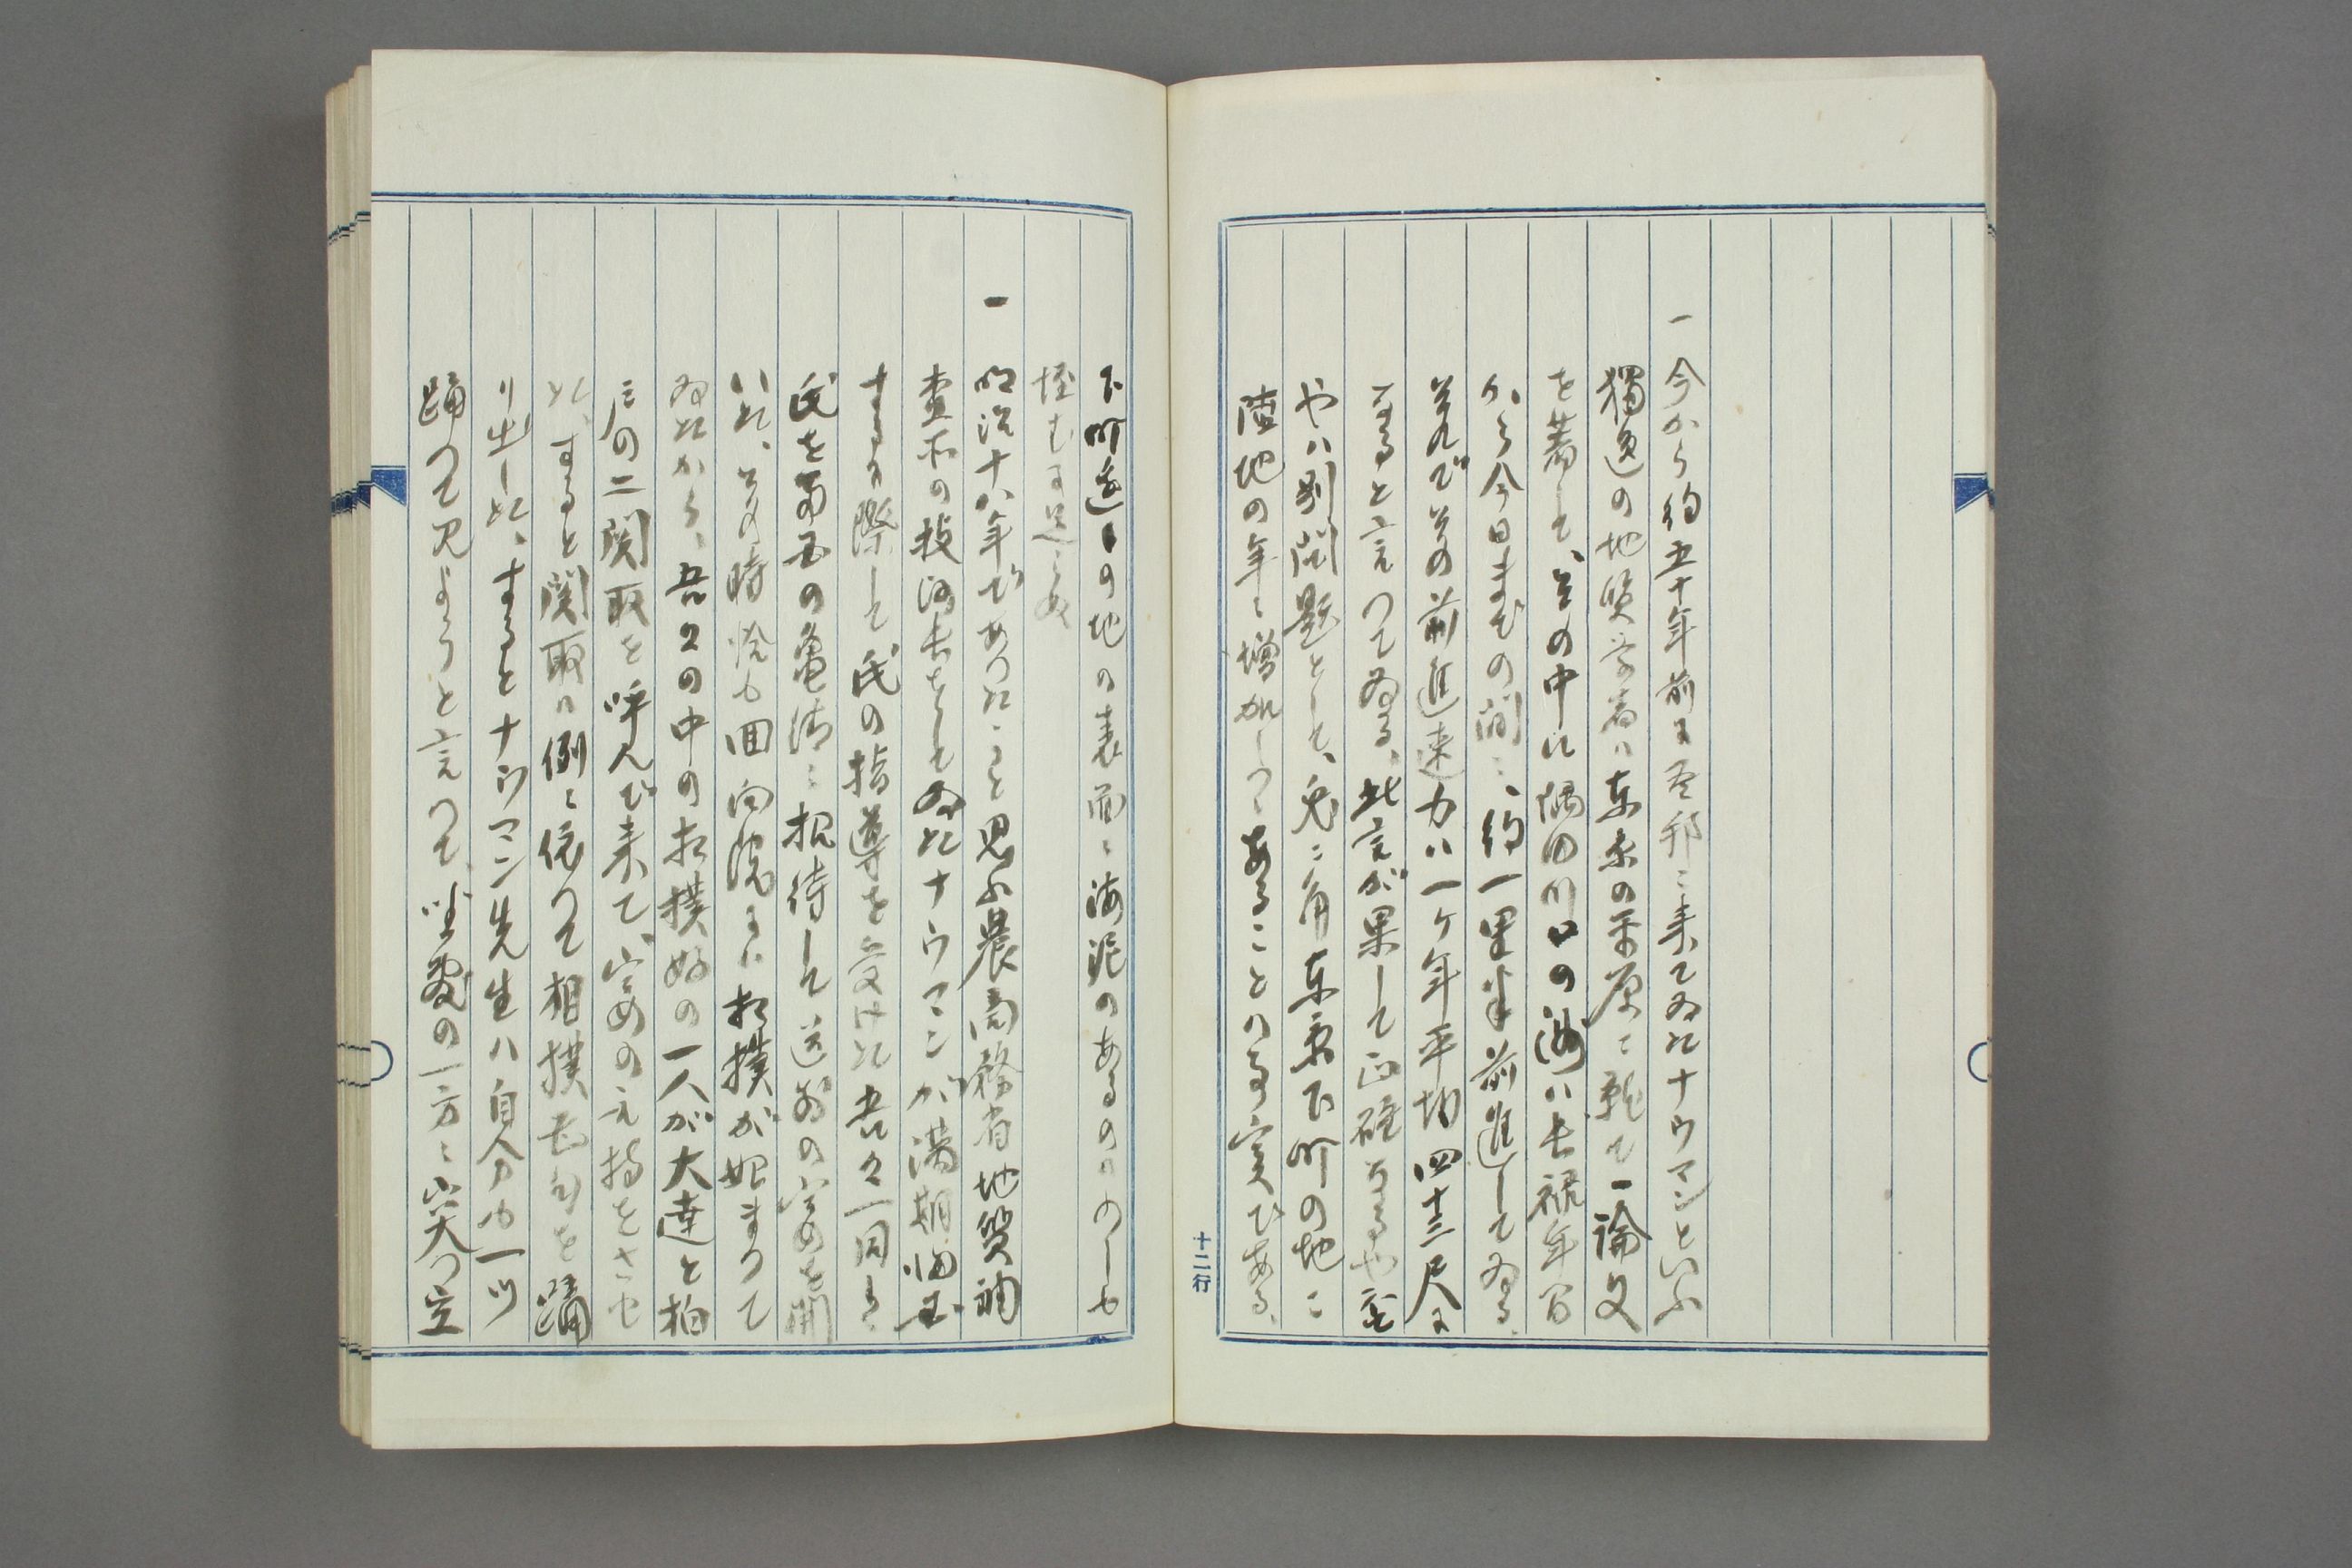 一 今から約五十年前に吾邦に来てゐたナウマンといふ
獨逸の地質学者は東京の平原に就て一論文
を著して、その中に隅田川口の洲は長禄年間
から今日までの間に、約一里半前進してゐる。
それでその前進速力は一ケ年平均四十三尺に
なると言つてゐる、此言が果して正確なるや否
やは別問題として、兎に角東京下町の地に
陸地の年に増加しつゝあることは事実である、
十二行
下町辺の地の表面に海泥のあるのは
怪むに足らぬ
一 明治十八年であつたことと思ふ農商務省地質調
査所の技術長をしてゐたナウマンが満期帰国
するに際して氏の指導を受けた吾々一同は
氏を両国の亀清に招待して送別の宴を開
いた、その時恰も回向院には相撲が始まつて
ゐたから、吾々の中の相撲好の一人が大達と柏
戸の二関取を呼んで来て、宴の取持をさせ
た、すると関取は例に依つて相撲甚句を踊
り出した、するとナウマン先生は自分も一ツ
踊つて見ようと言つて、座敷の一方に突つ立